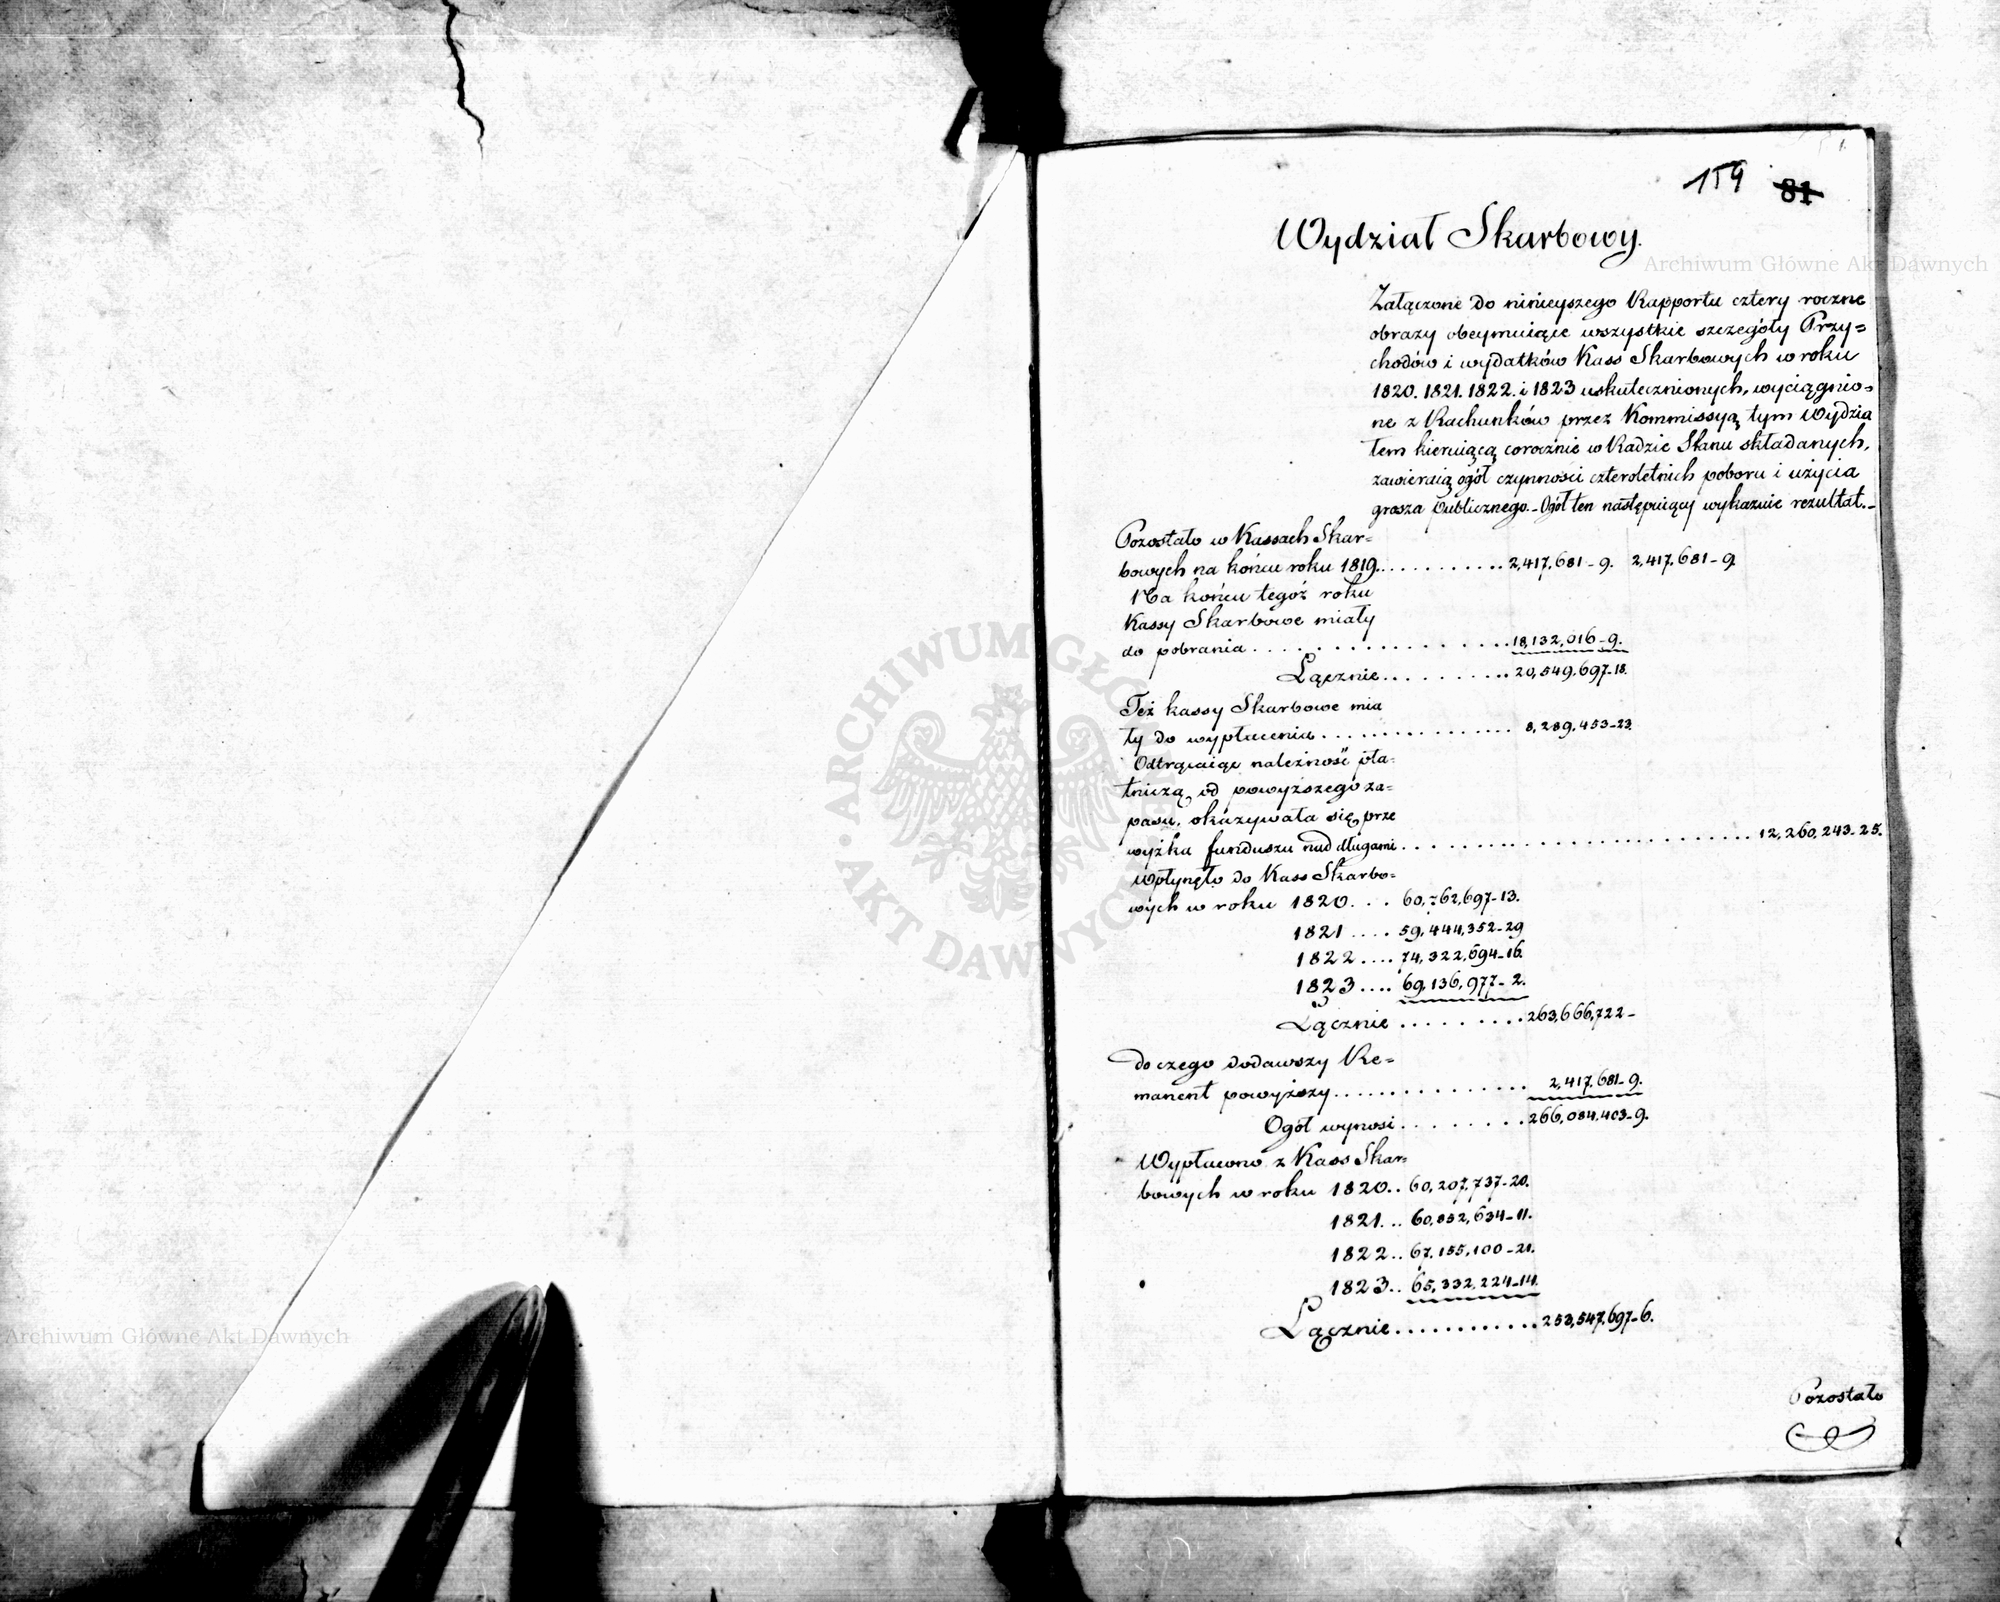 159 81
Wydział Skarbowy.
Załączone do ninieyszego Rapportu cztery roczne
obrazy obeymuiące wszystkie szczegóły Przy=
chodów i wydatków Kass Skarbowych w roku
1820. 1821. 1822. i 1823 uskutecznionych, wyciągnio=
ne z Rachunków przez Kommissyą tym Wydzia
łem kieruiącą corocznie w Radzie Stanu składanych,
zawieraią ogół czynności czteroletnich poboru i użycia
grosza publicznego. - Ogół ten następuiący wykazuie rezultat. -
Pozostało w Kassach Skar=
bowych na końcu roku 1819. . . . . . . . . . . 2,417,681 - 9. 2,417,681 - 9
Na końcu tegoż roku
Kassy Skarbowe miały
do pobrania . . . . . . . . . . . . . . . . . 18,132,016 - 9.
Łącznie . . . . . . . . . . 20,549,697 - 18.
Też kassy Skarbowe mia
ły do wypłacenia . . . . . . . . . . . . . . . 8,289,453 - 23.
Odtrącaiąc należność pła=
tniczą od powyższego za=
pasu, okazywała się prze
wyżka funduszu nad długami . . . . . . . . . . . . . . . . . . . . . . . . 12,260,243 - 25.
Wpłynęło do Kass Skarbo=
wych w roku 1820. . . . 60,762,697 - 13.
1821 . . . . 59,444,352 - 29
1822 . . . . 74,322,694 - 16.
1823 . . . . 69,136,977 - 2.
Łącznie . . . . . . . . . 263,666,722 -
do czego dodawszy Re=
manent powyższy . . . . . . . . . . . . . . . 2,417,681 - 9.
Ogół wynosi . . . . . . . . . 266,084,403 - 9.
Wypłacono z Kass Skar=
bowych w roku 1820. . 60,207,737 - 20.
1821. . . 60,852,634 - 11.
1822 . . 67,155,100 - 21.
1823. . 65,332,224 - 14.
Łącznie . . . . . . . . . . . . 253,547,697 - 6.
Pozostało
Archiwum Główne Akt Dawnych
Archiwum Główne Akt Dawnych
ARCHIWUM GŁÓWNE AKT DAWNYCH